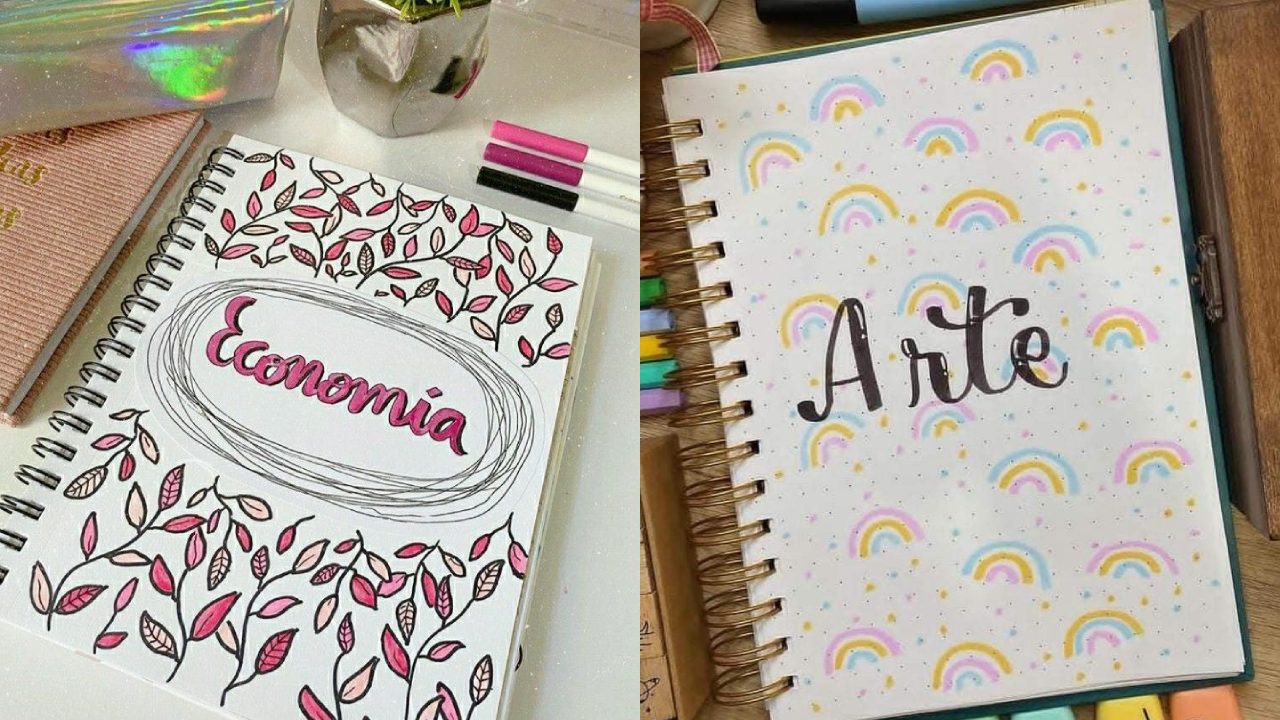 Economía
Arte